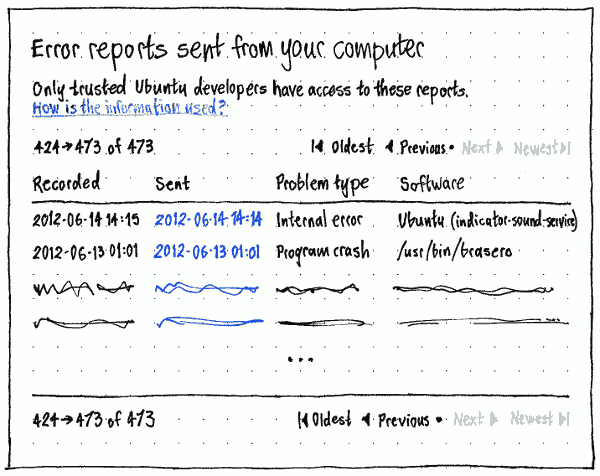 Error reports sent from your computer
Only trusted Ubuntu developers have access to these reports.
How is the information used?
424→473 of 473 Oldest Previous • Next Newest
Recorded Sent Problem type Software
2012-06-14 14:15 2012-06-14 14:14 Internal error Ubuntu (indicator-sound-service)
2012-06-13 01:01 2012-06-13 01:01 Program crash /usr/bin/brasero
...
424→473 of 473 Oldest Previous • Next Newest